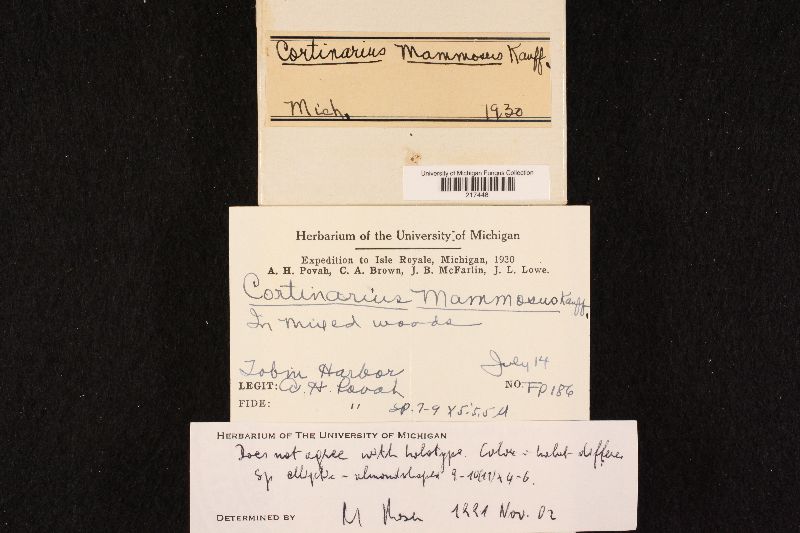 Cortinarius Mammosus Kauff.
Mich. 1930
University of Michigan Fungus Collection
217448
Herbarium of the University of Michigan
Expedition to Isle Royale, Michigan, 1930
A. H. Povah, C. A. Brown, J. B. McFarlin, J. L. Lowe.
Cortinarius Mammosus Kauff.
In mixed woods
July 14
Tobin Harbor
LEGIT: A. H. Povah NO. FP 186
FIDE: " sp. 7-9 x 5-5.5 µ
HERBARIUM OF THE UNIVERSITY OF MICHIGAN
Does not agree with holotype. Color + habit differ
Sp elliptic - almondshaped 9-10(11) x 4-6.
DETERMINED BY M 1991 Nov. 02